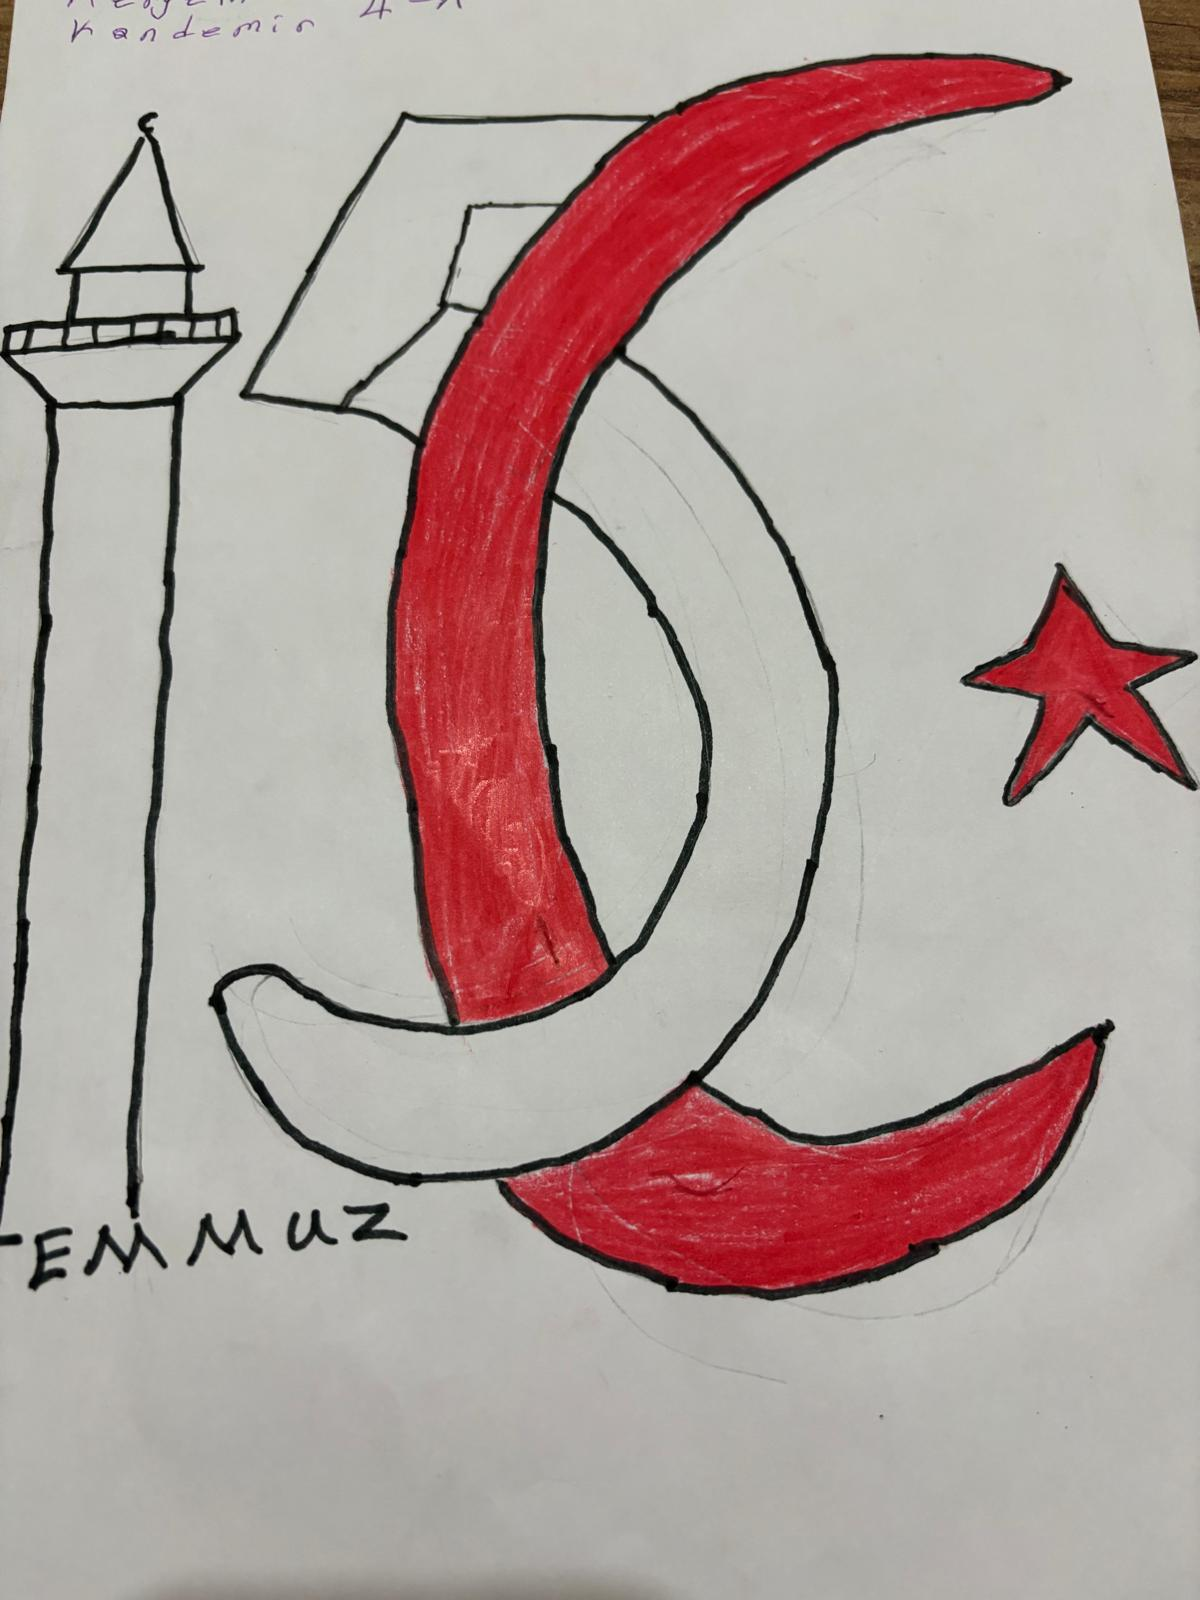 4-A
Kandemir
15
TEMMUZ